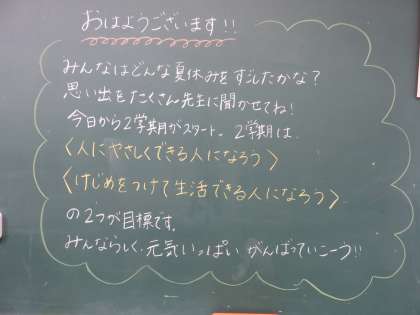 おはようございます!!
みんなはどんな夏休みをすごしたかな?
思い出をたくさん先生に聞かせてね!
今日から2学期がスタート。2学期は、
〈人にやさしくできる人になろう〉
〈けじめをつけて生活できる人になろう〉
の2つが目標です。
みんならしく、元気いっぱいがんばっていこーう!!